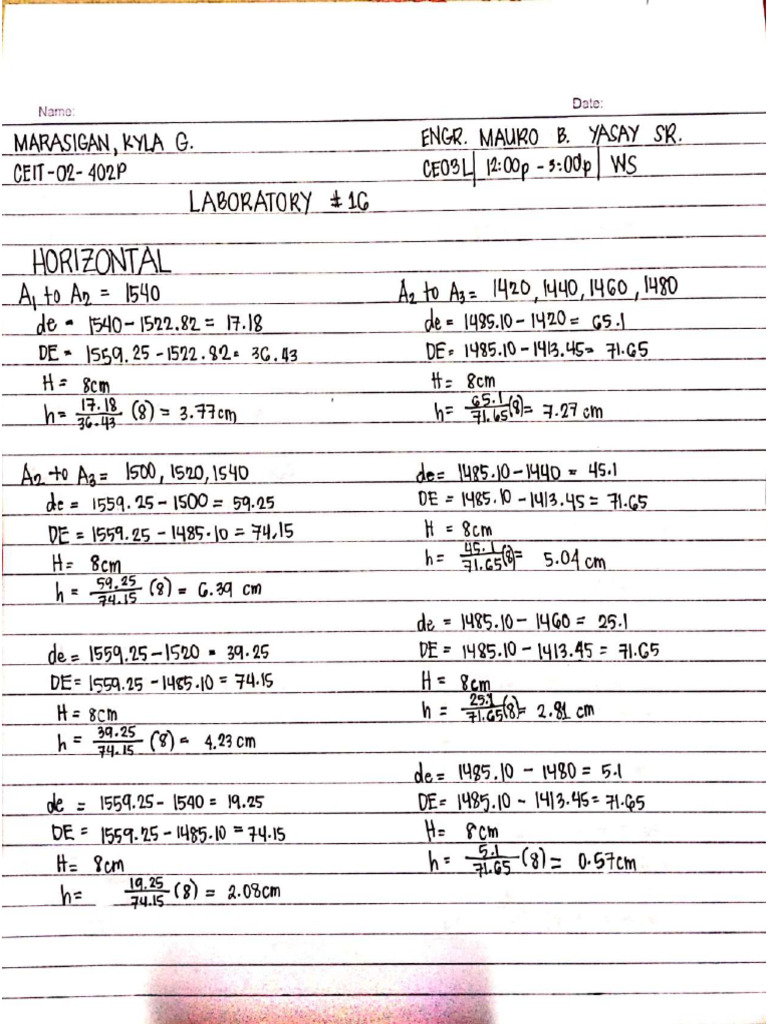 Name:
Date:
MARASIGAN, KYLA G.
ENGR. MAURO B. YASAY SR.
CEIT-02-402P
CE03L | 12:00p - 3:00p | WS
LABORATORY # 16
HORIZONTAL
A₁ to A₂ = 1540
de = 1540-1522.82 = 17.18
DE = 1559.25-1522.82 = 36.43
H = 8cm
h = 17.18/36.43 (8) = 3.77cm
A₂ to A₃ = 1500, 1520, 1540
de = 1559.25-1500 = 59.25
DE = 1559.25-1485.10 = 74.15
H = 8cm
h = 59.25/74.15 (8) = 6.39 cm
de = 1559.25-1520 = 39.25
DE = 1559.25-1485.10 = 74.15
H = 8cm
h = 39.25/74.15 (8) = 4.23cm
de = 1559.25-1540 = 19.25
DE = 1559.25-1485.10 = 74.15
H = 8cm
h = 19.25/74.15 (8) = 2.08cm
A₂ to A₃ = 1420, 1440, 1460, 1480
de = 1485.10-1420 = 65.1
DE = 1485.10-1413.45 = 71.65
H = 8cm
h = 65.1/71.65 (8) = 7.27 cm
de = 1485.10-1440 = 45.1
DE = 1485.10-1413.45 = 71.65
H = 8cm
h = 45.1/71.65 (8) = 5.04 cm
de = 1485.10-1460 = 25.1
DE = 1485.10-1413.45 = 71.65
H = 8cm
h = 25.1/71.65 (8) = 2.81 cm
de = 1485.10-1480 = 5.1
DE = 1485.10-1413.45 = 71.65
H = 8cm
h = 5.1/71.65 (8) = 0.57cm